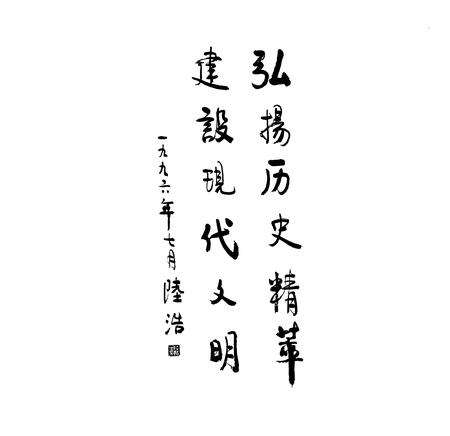 弘揚历史精華
建設現代文明
一九九六年七月陸浩